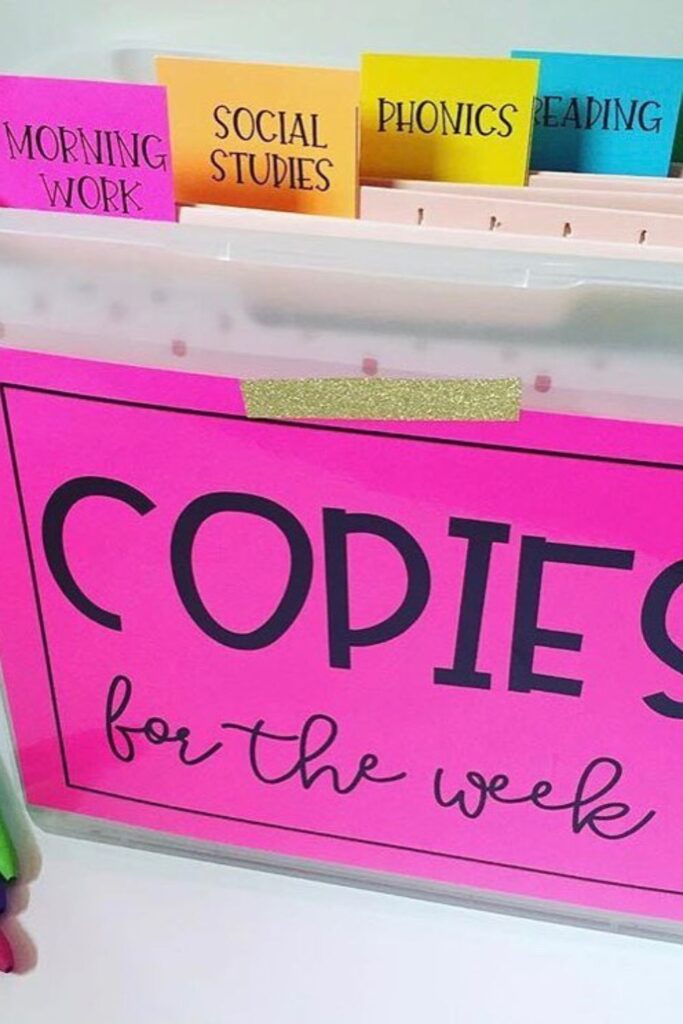 MORNING
WORK
SOCIAL
STUDIES
PHONICS
READING
COPIES
for the week